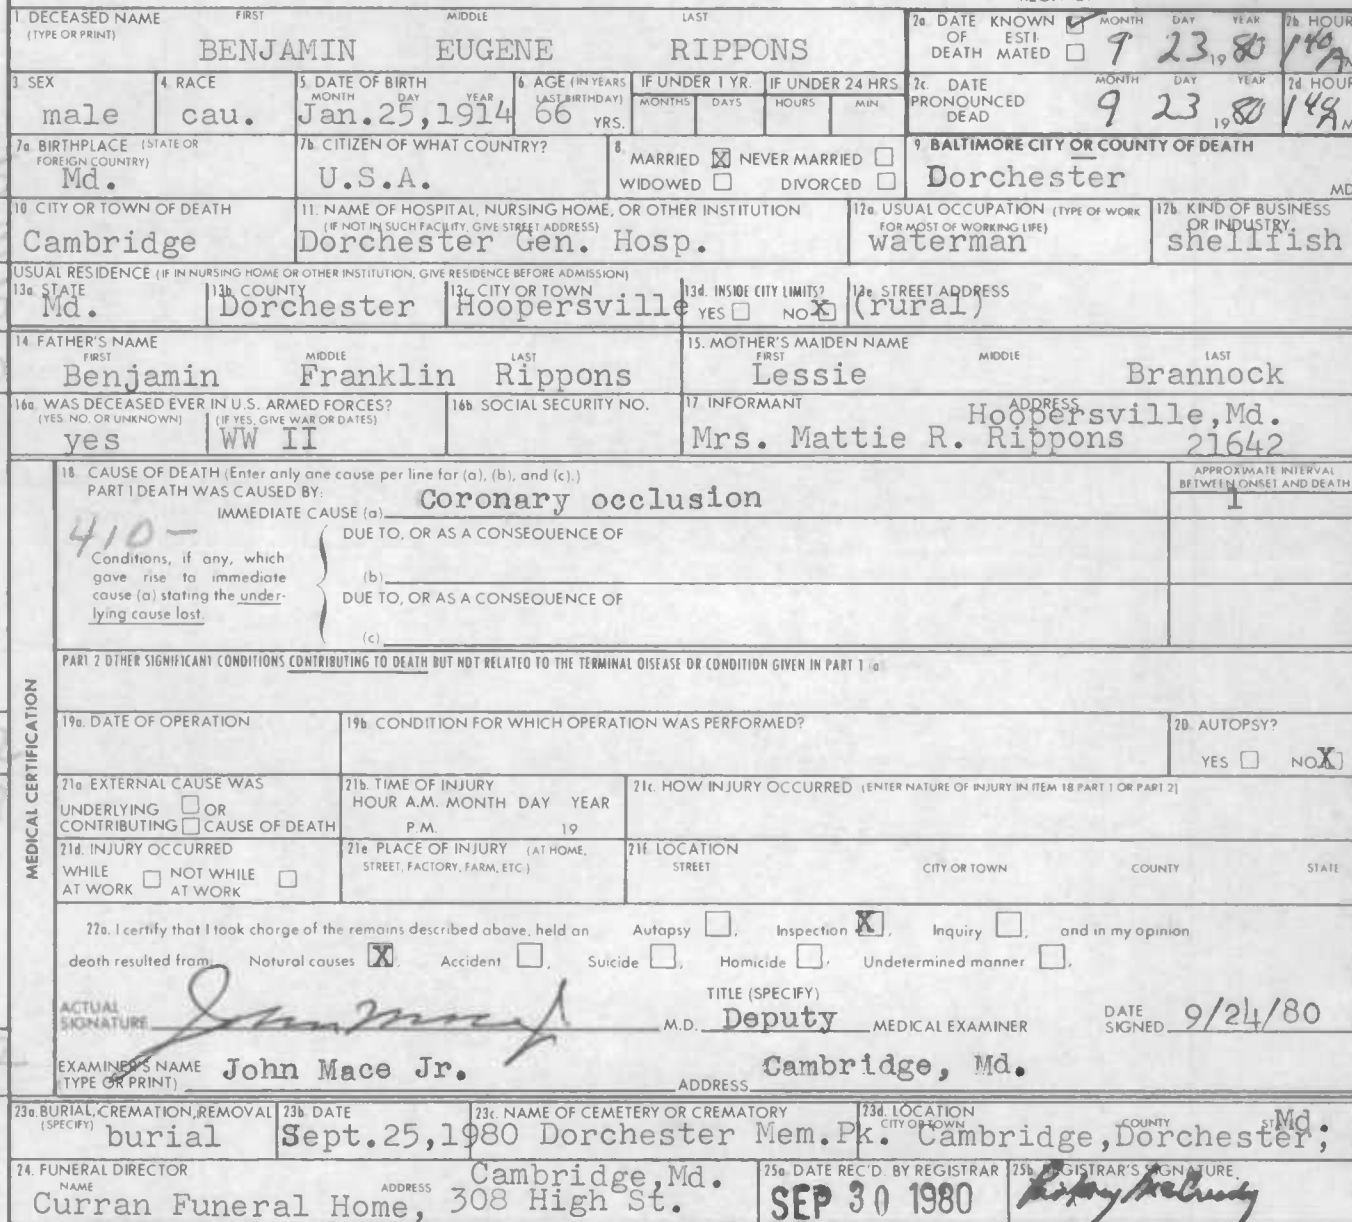 1 DECEASED NAME FIRST MIDDLE LAST
(TYPE OR PRINT)
BENJAMIN EUGENE RIPPONS
2a DATE KNOWN MONTH DAY YEAR
OF ESTI-
DEATH MATED 9 23 1980
2b HOUR
1 40 A M
3 SEX
male
4 RACE
cau.
5 DATE OF BIRTH
MONTH DAY YEAR
Jan. 25, 1914
6 AGE (IN YEARS
LAST BIRTHDAY)
66 YRS.
IF UNDER 1 YR.
MONTHS DAYS
IF UNDER 24 HRS
HOURS MIN
2c. DATE MONTH DAY YEAR
PRONOUNCED
DEAD 9 23 1980
2d HOUR
7a BIRTHPLACE (STATE OR
FOREIGN COUNTRY)
Md.
7b CITIZEN OF WHAT COUNTRY?
U.S.A.
8
MARRIED X NEVER MARRIED
WIDOWED DIVORCED
9 BALTIMORE CITY OR COUNTY OF DEATH
Dorchester MD
10 CITY OR TOWN OF DEATH
Cambridge
11. NAME OF HOSPITAL, NURSING HOME, OR OTHER INSTITUTION
(IF NOT IN SUCH FACILITY, GIVE STREET ADDRESS)
Dorchester Gen. Hosp.
12a USUAL OCCUPATION (TYPE OF WORK
FOR MOST OF WORKING LIFE)
waterman
12b KIND OF BUSINESS
OR INDUSTRY
shellfish
USUAL RESIDENCE (IF IN NURSING HOME OR OTHER INSTITUTION, GIVE RESIDENCE BEFORE ADMISSION)
13a STATE
Md.
13b COUNTY
Dorchester
13c CITY OR TOWN
Hoopersville
13d. INSIDE CITY LIMITS?
YES NO X
13e STREET ADDRESS
(rural)
14 FATHER'S NAME
FIRST MIDDLE LAST
Benjamin Franklin Rippons
15. MOTHER'S MAIDEN NAME
FIRST MIDDLE LAST
Lessie Brannock
16a WAS DECEASED EVER IN U.S. ARMED FORCES?
(YES, NO, OR UNKNOWN) (IF YES, GIVE WAR OR DATES)
yes WW II
16b SOCIAL SECURITY NO.
17 INFORMANT ADDRESS
Hoopersville, Md.
Mrs. Mattie R. Rippons 21642
MEDICAL CERTIFICATION
18 CAUSE OF DEATH (Enter only one cause per line for (a), (b), and (c).)
PART I DEATH WAS CAUSED BY:
IMMEDIATE CAUSE (a) Coronary occlusion
APPROXIMATE INTERVAL
BETWEEN ONSET AND DEATH
1
410-
Conditions, if any, which
gave rise to immediate
cause (a) stating the under-
lying cause last.
DUE TO, OR AS A CONSEQUENCE OF
(b)
DUE TO, OR AS A CONSEQUENCE OF
(c)
PART 2 OTHER SIGNIFICANT CONDITIONS CONTRIBUTING TO DEATH BUT NOT RELATED TO THE TERMINAL DISEASE OR CONDITION GIVEN IN PART 1 a
19a. DATE OF OPERATION
19b CONDITION FOR WHICH OPERATION WAS PERFORMED?
20 AUTOPSY?
YES NO X
21a EXTERNAL CAUSE WAS
UNDERLYING OR
CONTRIBUTING CAUSE OF DEATH
21b. TIME OF INJURY
HOUR A.M. MONTH DAY YEAR
P.M. 19
21c. HOW INJURY OCCURRED (ENTER NATURE OF INJURY IN ITEM 18 PART 1 OR PART 2)
21d. INJURY OCCURRED
WHILE NOT WHILE
AT WORK AT WORK
21e PLACE OF INJURY (AT HOME,
STREET, FACTORY, FARM, ETC)
21f LOCATION
STREET CITY OR TOWN COUNTY STATE
22a. I certify that I took charge of the remains described above, held an Autopsy , Inspection X , Inquiry , and in my opinion
death resulted from Natural causes X . Accident , Suicide , Homicide , Undetermined manner .
ACTUAL
SIGNATURE John Mace Jr M.D.
TITLE (SPECIFY)
Deputy MEDICAL EXAMINER
DATE
SIGNED 9/24/80
EXAMINER'S NAME
(TYPE OR PRINT) John Mace Jr.
ADDRESS Cambridge, Md.
23a. BURIAL, CREMATION, REMOVAL
(SPECIFY) burial
23b DATE
Sept. 25, 1980
23c. NAME OF CEMETERY OR CREMATORY
Dorchester Mem. Pk.
23d. LOCATION
CITY OR TOWN COUNTY ST
Cambridge, Dorchester, Md
24. FUNERAL DIRECTOR
NAME ADDRESS
Cambridge, Md.
Curran Funeral Home, 308 High St.
25a DATE REC'D. BY REGISTRAR
SEP 30 1980
25b REGISTRAR'S SIGNATURE